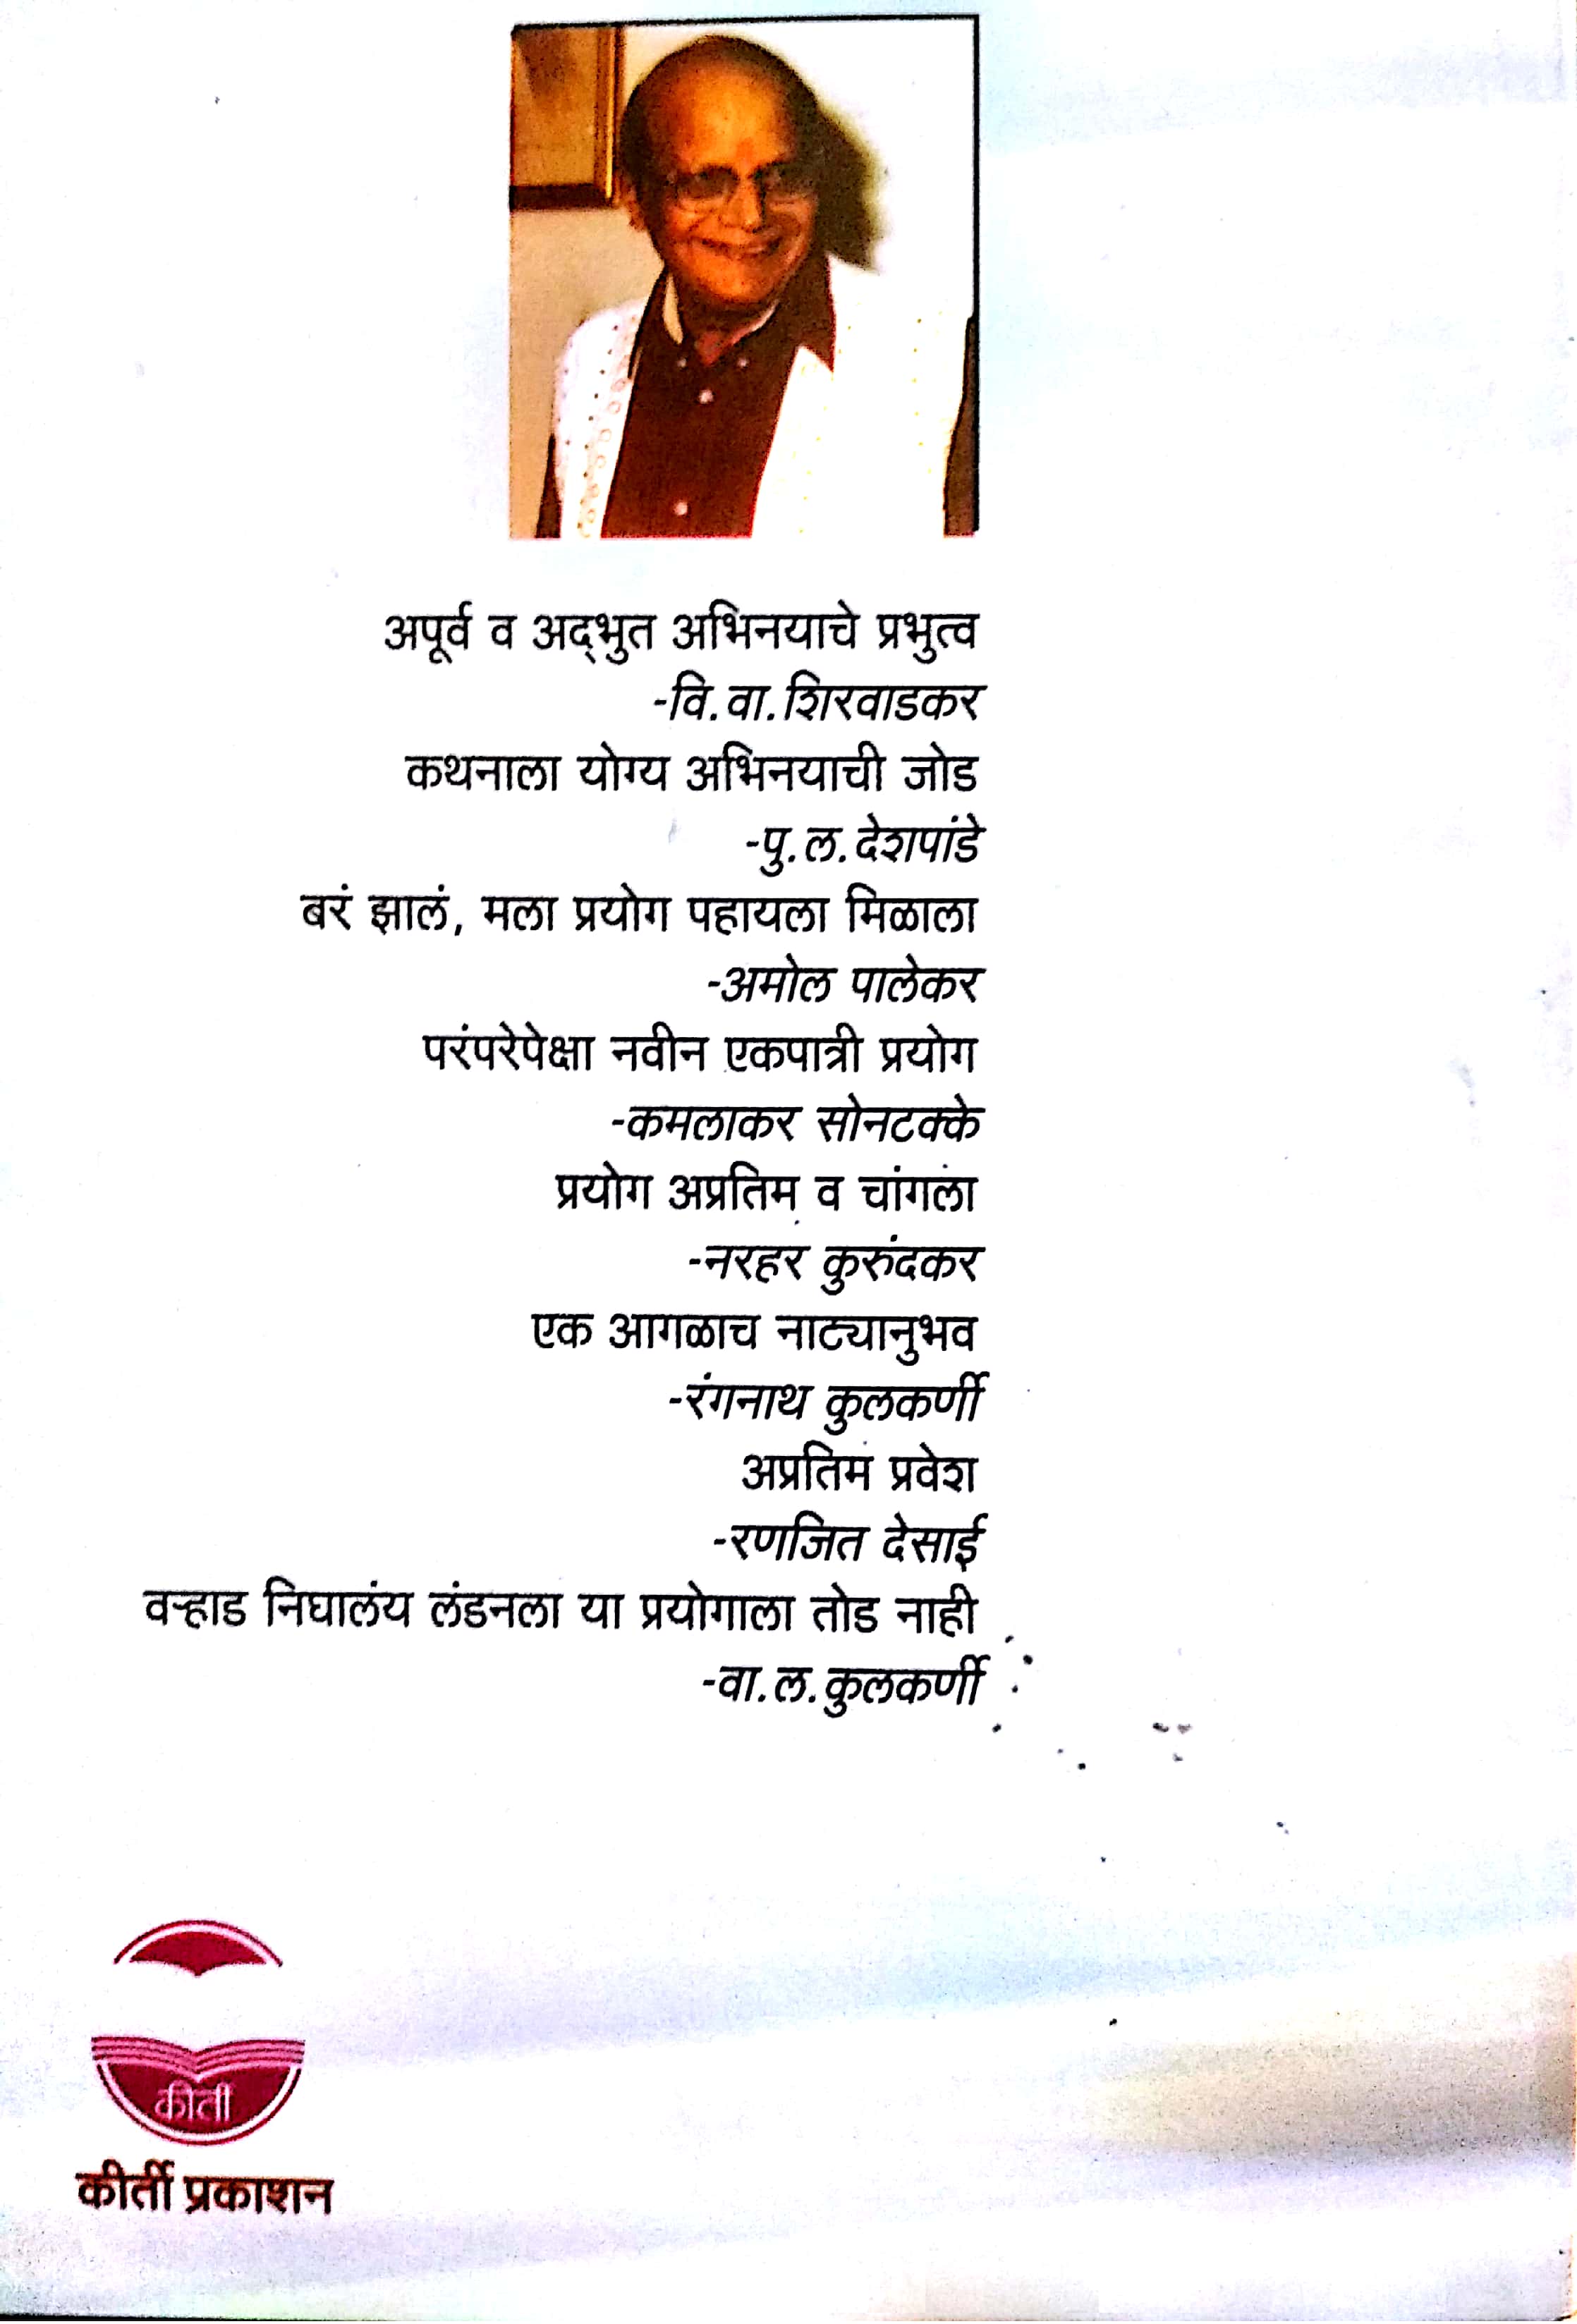 अपूर्व व अद्‌भुत अभिनयाचे प्रभुत्व
-वि.वा.शिरवाडकर
कथनाला योग्य अभिनयाची जोड
-पु.ल.देशपांडे
बरं झालं, मला प्रयोग पहायला मिळाला
-अमोल पालेकर
परंपरेपेक्षा नवीन एकपात्री प्रयोग
-कमलाकर सोनटक्के
प्रयोग अप्रतिम व चांगला
-नरहर कुरुंदकर
एक आगळाच नाट्यानुभव
-रंगनाथ कुलकर्णी
अप्रतिम प्रवेश
-रणजित देसाई
वऱ्हाड निघालंय लंडनला या प्रयोगाला तोड नाही
-वा.ल.कुलकर्णी
कीर्ती
कीर्ती प्रकाशन